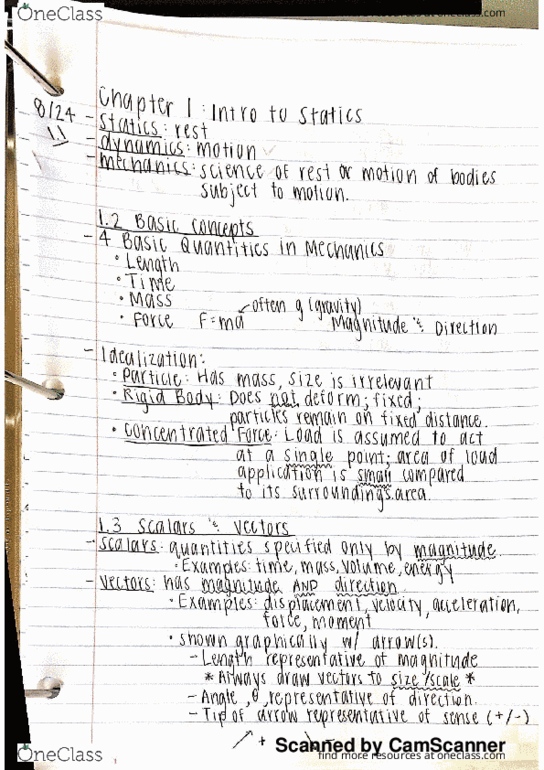 OneClass
find more resources at oneclass.com
Chapter 1: Intro to Statics
8/24 - Statics: rest
1.1 - dynamics: motion
- mechanics: science of rest or motion of bodies
subject to motion.
1.2 Basic Concepts
- 4 Basic Quantities in Mechanics
• Length
• Time
• Mass
often g (gravity)
• Force F=ma Magnitude & Direction
- Idealization:
• Particle: Has mass, size is irrelevant
• Rigid Body: Does not deform; fixed;
particles remain on fixed distance.
• Concentrated Force: Load is assumed to act
at a single point; area of load
application is small compared
to its surroundings area.
1.3 Scalars & Vectors
- Scalars: quantities specified only by magnitude.
• Examples: time, mass, volume, energy
- Vectors: has magnitude AND direction.
• Examples: displacement, velocity, acceleration,
force, moment
• shown graphically w/ arrow(s).
- Length representative of magnitude
* Always draw vectors to size/scale *
- Angle, θ, representative of direction.
- Tip of arrow representative of sense (+/-)
+
Scanned by CamScanner
OneClass
find more resources at oneclass.com